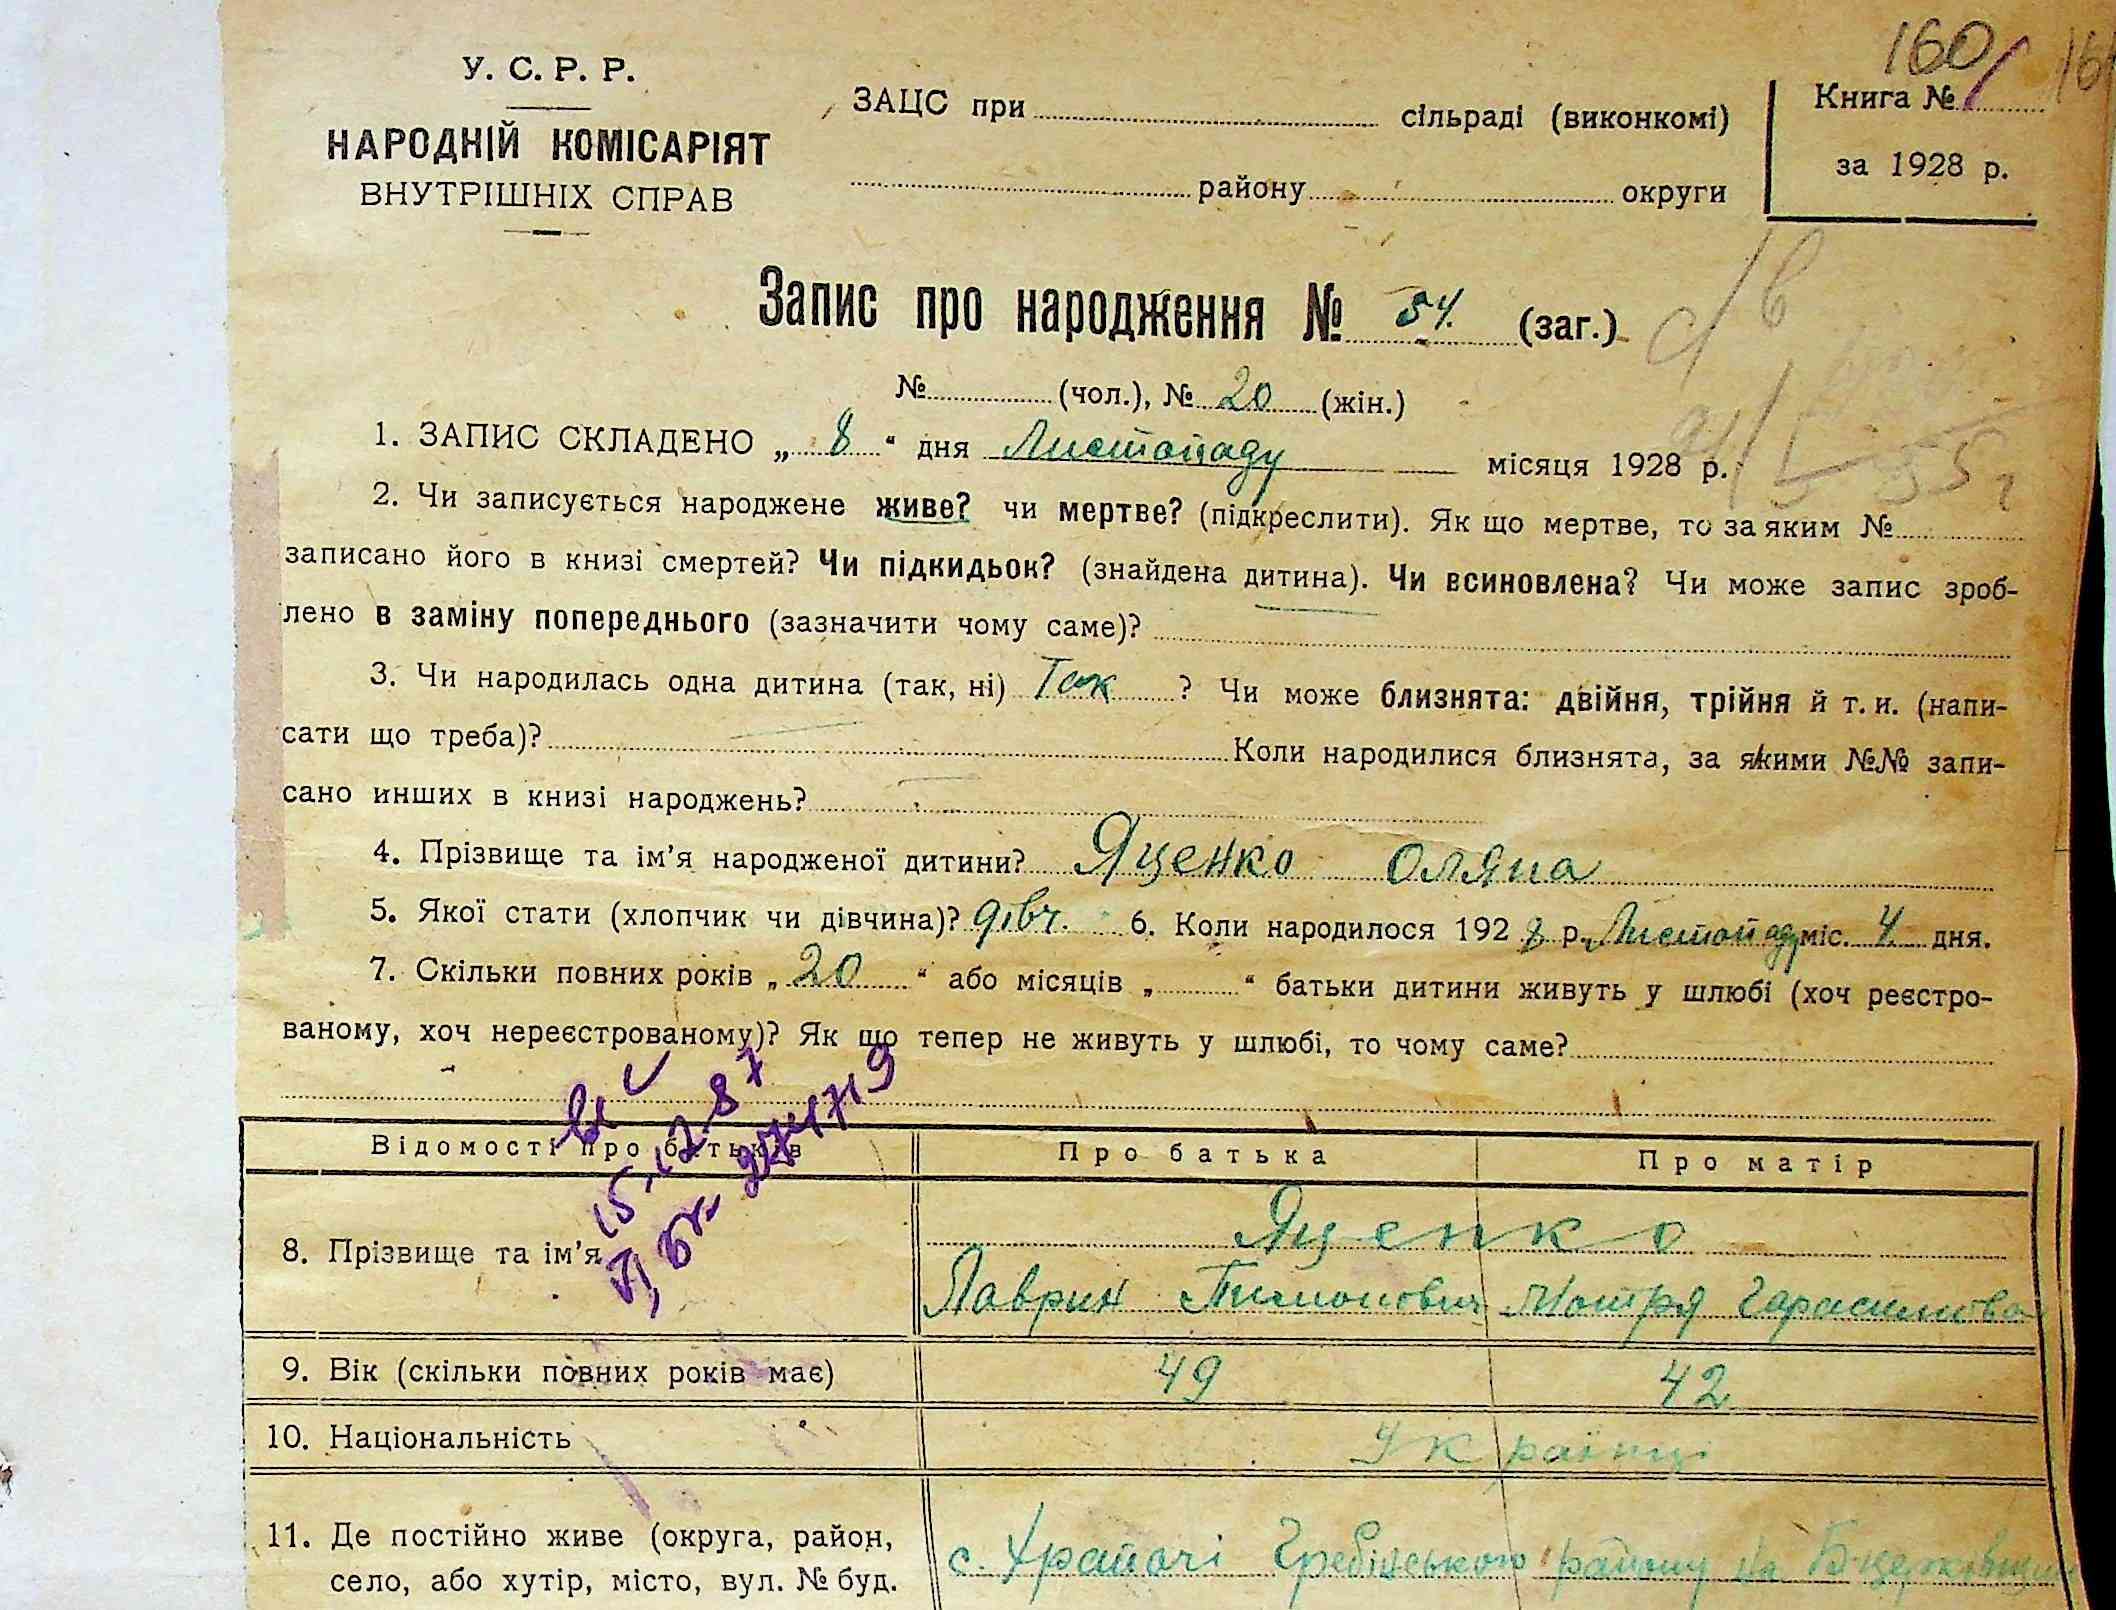 160
У. С. Р. Р.
НАРОДНІЙ КОМІСАРІЯТ
ВНУТРІШНІХ СПРАВ
ЗАЦС при сільраді (виконкомі)
району округи
Книга №
за 1928 р.
Запис про народження № 54. (заг.)
№ (чол.), № 20 (жін.)
1. ЗАПИС СКЛАДЕНО „ 8 “ дня Листопаду місяця 1928 р.
2. Чи записується народжене живе? чи мертве? (підкреслити). Як що мертве, то за яким №
записано його в книзі смертей? Чи підкидьок? (знайдена дитина). Чи всиновлена? Чи може запис зроб-
лено в заміну попереднього (зазначити чому саме)?
3. Чи народилась одна дитина (так, ні) Так ? Чи може близнята: двійня, трійня й т. и. (напи-
сати що треба)? Коли народилися близнята, за якими №№ запи-
сано инших в книзі народжень?
4. Прізвище та ім’я народженої дитини? Яценко Оляна
5. Якої стати (хлопчик чи дівчина)? дівч. 6. Коли народилося 1928 р. Листопад міс. 4 дня.
7. Скільки повних років „ 20 “ або місяців „ “ батьки дитини живуть у шлюбі (хоч реєстро-
ваному, хоч нереєстрованому)? Як що тепер не живуть у шлюбі, то чому саме?
Відомості про батьків Про батька Про матір
15.12.87
8. Прізвище та ім’я Яценко
Лаврин Тимонович Мотря Гарасимова
9. Вік (скільки повних років має) 49 42
10. Національність Українці
11. Де постійно живе (округа, район, с. Храпачі Гребінського району на Б-церківщині
село, або хутір, місто, вул. № буд.